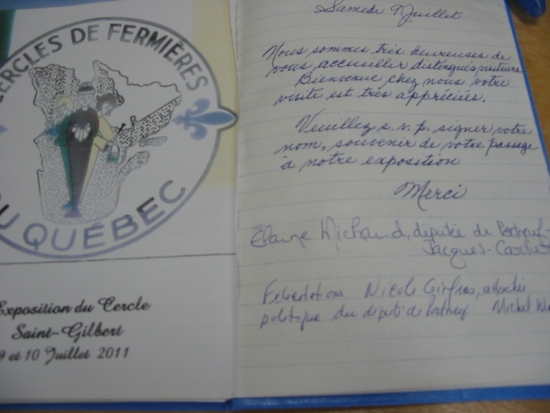 CERCLES DE FERMIÈRES
DU QUÉBEC
Exposition du Cercle
Saint-Gilbert
9 et 10 Juillet 2011
Samedi 9 Juillet
Nous sommes très heureuses de
vous accueillir distingués visiteurs
Bienvenue chez nous votre
visite est très appréciés.
Veuillez s.v.p. signer votre
nom, souvenir de votre passage
à notre exposition
Merci
Élaine Michaud, députée de Portneuf-
Jacques-Cartier
Félicitations Nicole
politique du député de Portneuf Michel